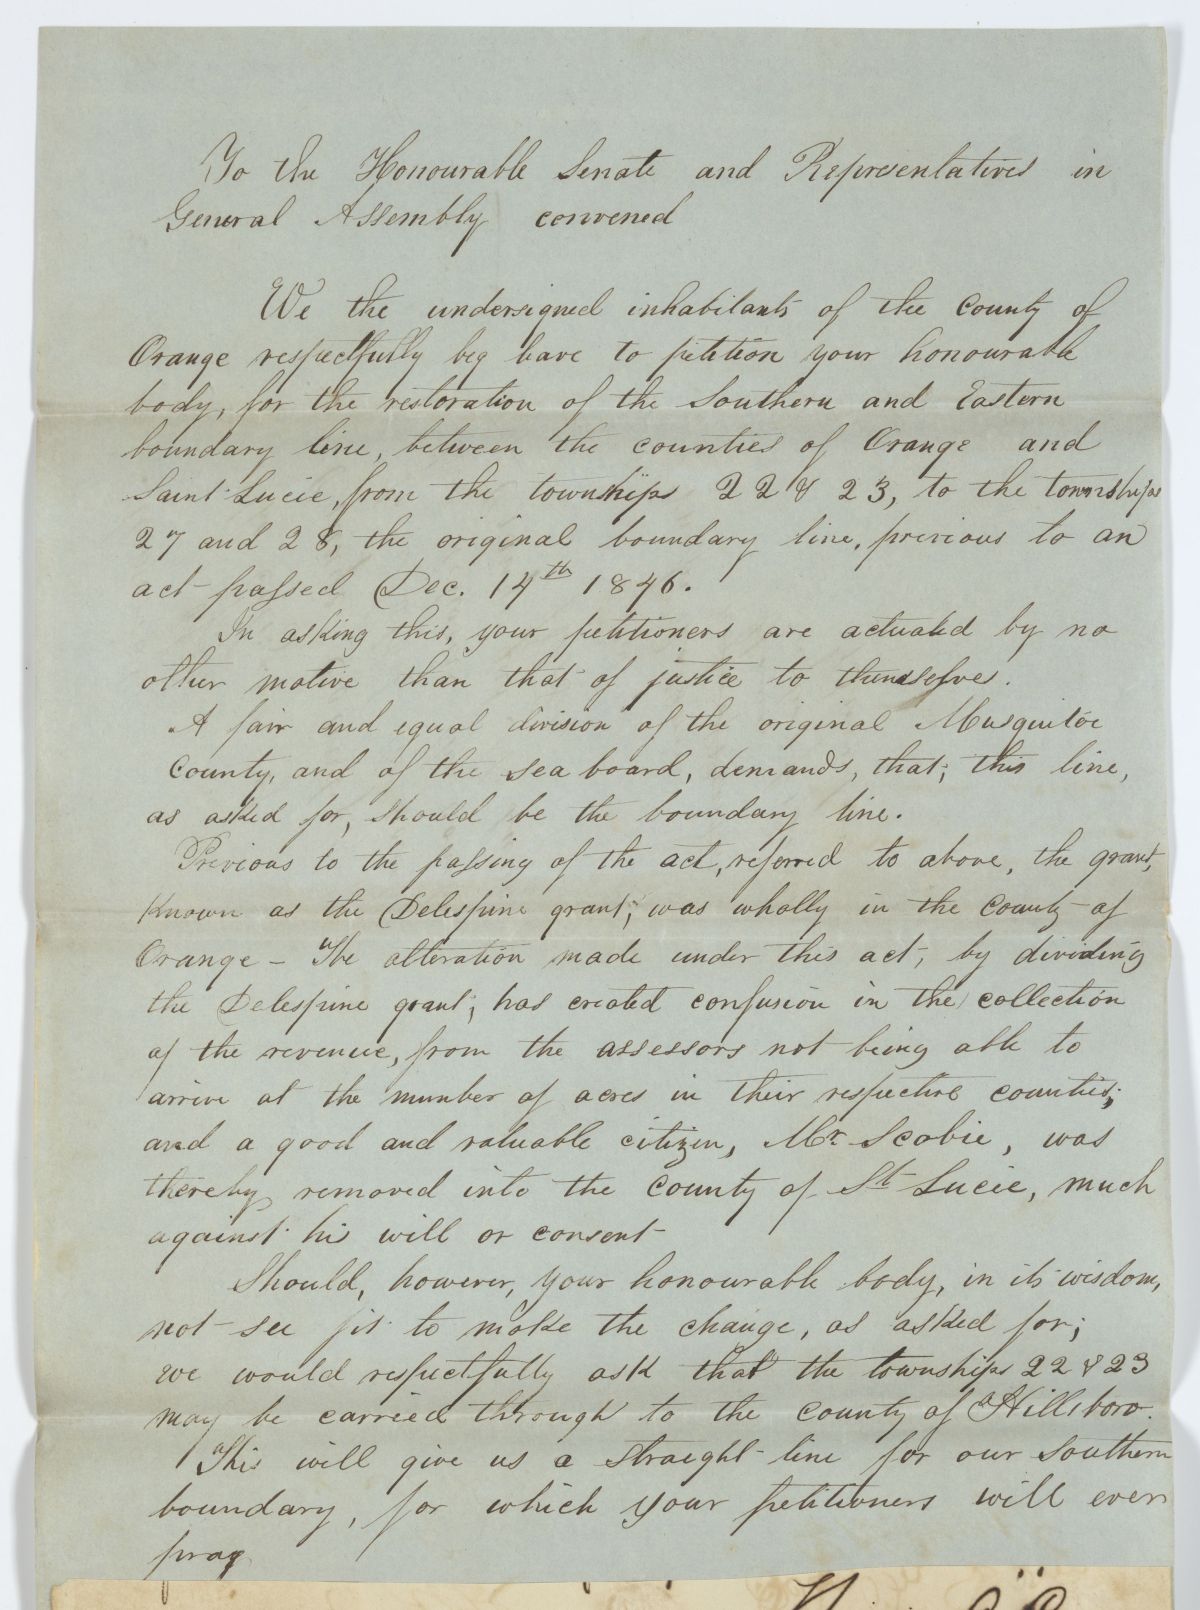 To the Honourable Senate and Representatives in
General Assembly convened
We the undersigned inhabitants of the County of
Orange respectfully beg leave to petition your honourable
body, for the restoration of the Southern and Eastern
boundary line, between the counties of Orange and
Saint Lucie, from the townships 22 & 23, to the townships
27 and 28, the original boundary line, previous to an
act passed Dec. 14th 1846.
In asking this, your petitioners are actuated by no
other motive than that of justice to themselves.
A fair and equal division of the original Musquitoe
County, and of the sea board, demands, that, this line,
as asked for, should be the boundary line.
Previous to the passing of the act, referred to above, the grant,
known as the Delespine grant, was wholly in the County of
Orange – The alteration made under this act, by dividing
the Delespine grant, has created confusion in the collection
of the revenue, from the assessors not being able to
arrive at the number of acres in their respective counties;
and a good and valuable citizen, Mr. Scobie, was
thereby removed into the County of St Lucie, much
against his will or consent
Should, however, your honourable body, in its wisdom,
not see fit to make the change, as asked for;
we would respectfully ask that the townships 22 & 23
may be carried through to the county of Hillsboro.
This will give us a straight line for our Southern
boundary, for which your petitioners will ever
pray